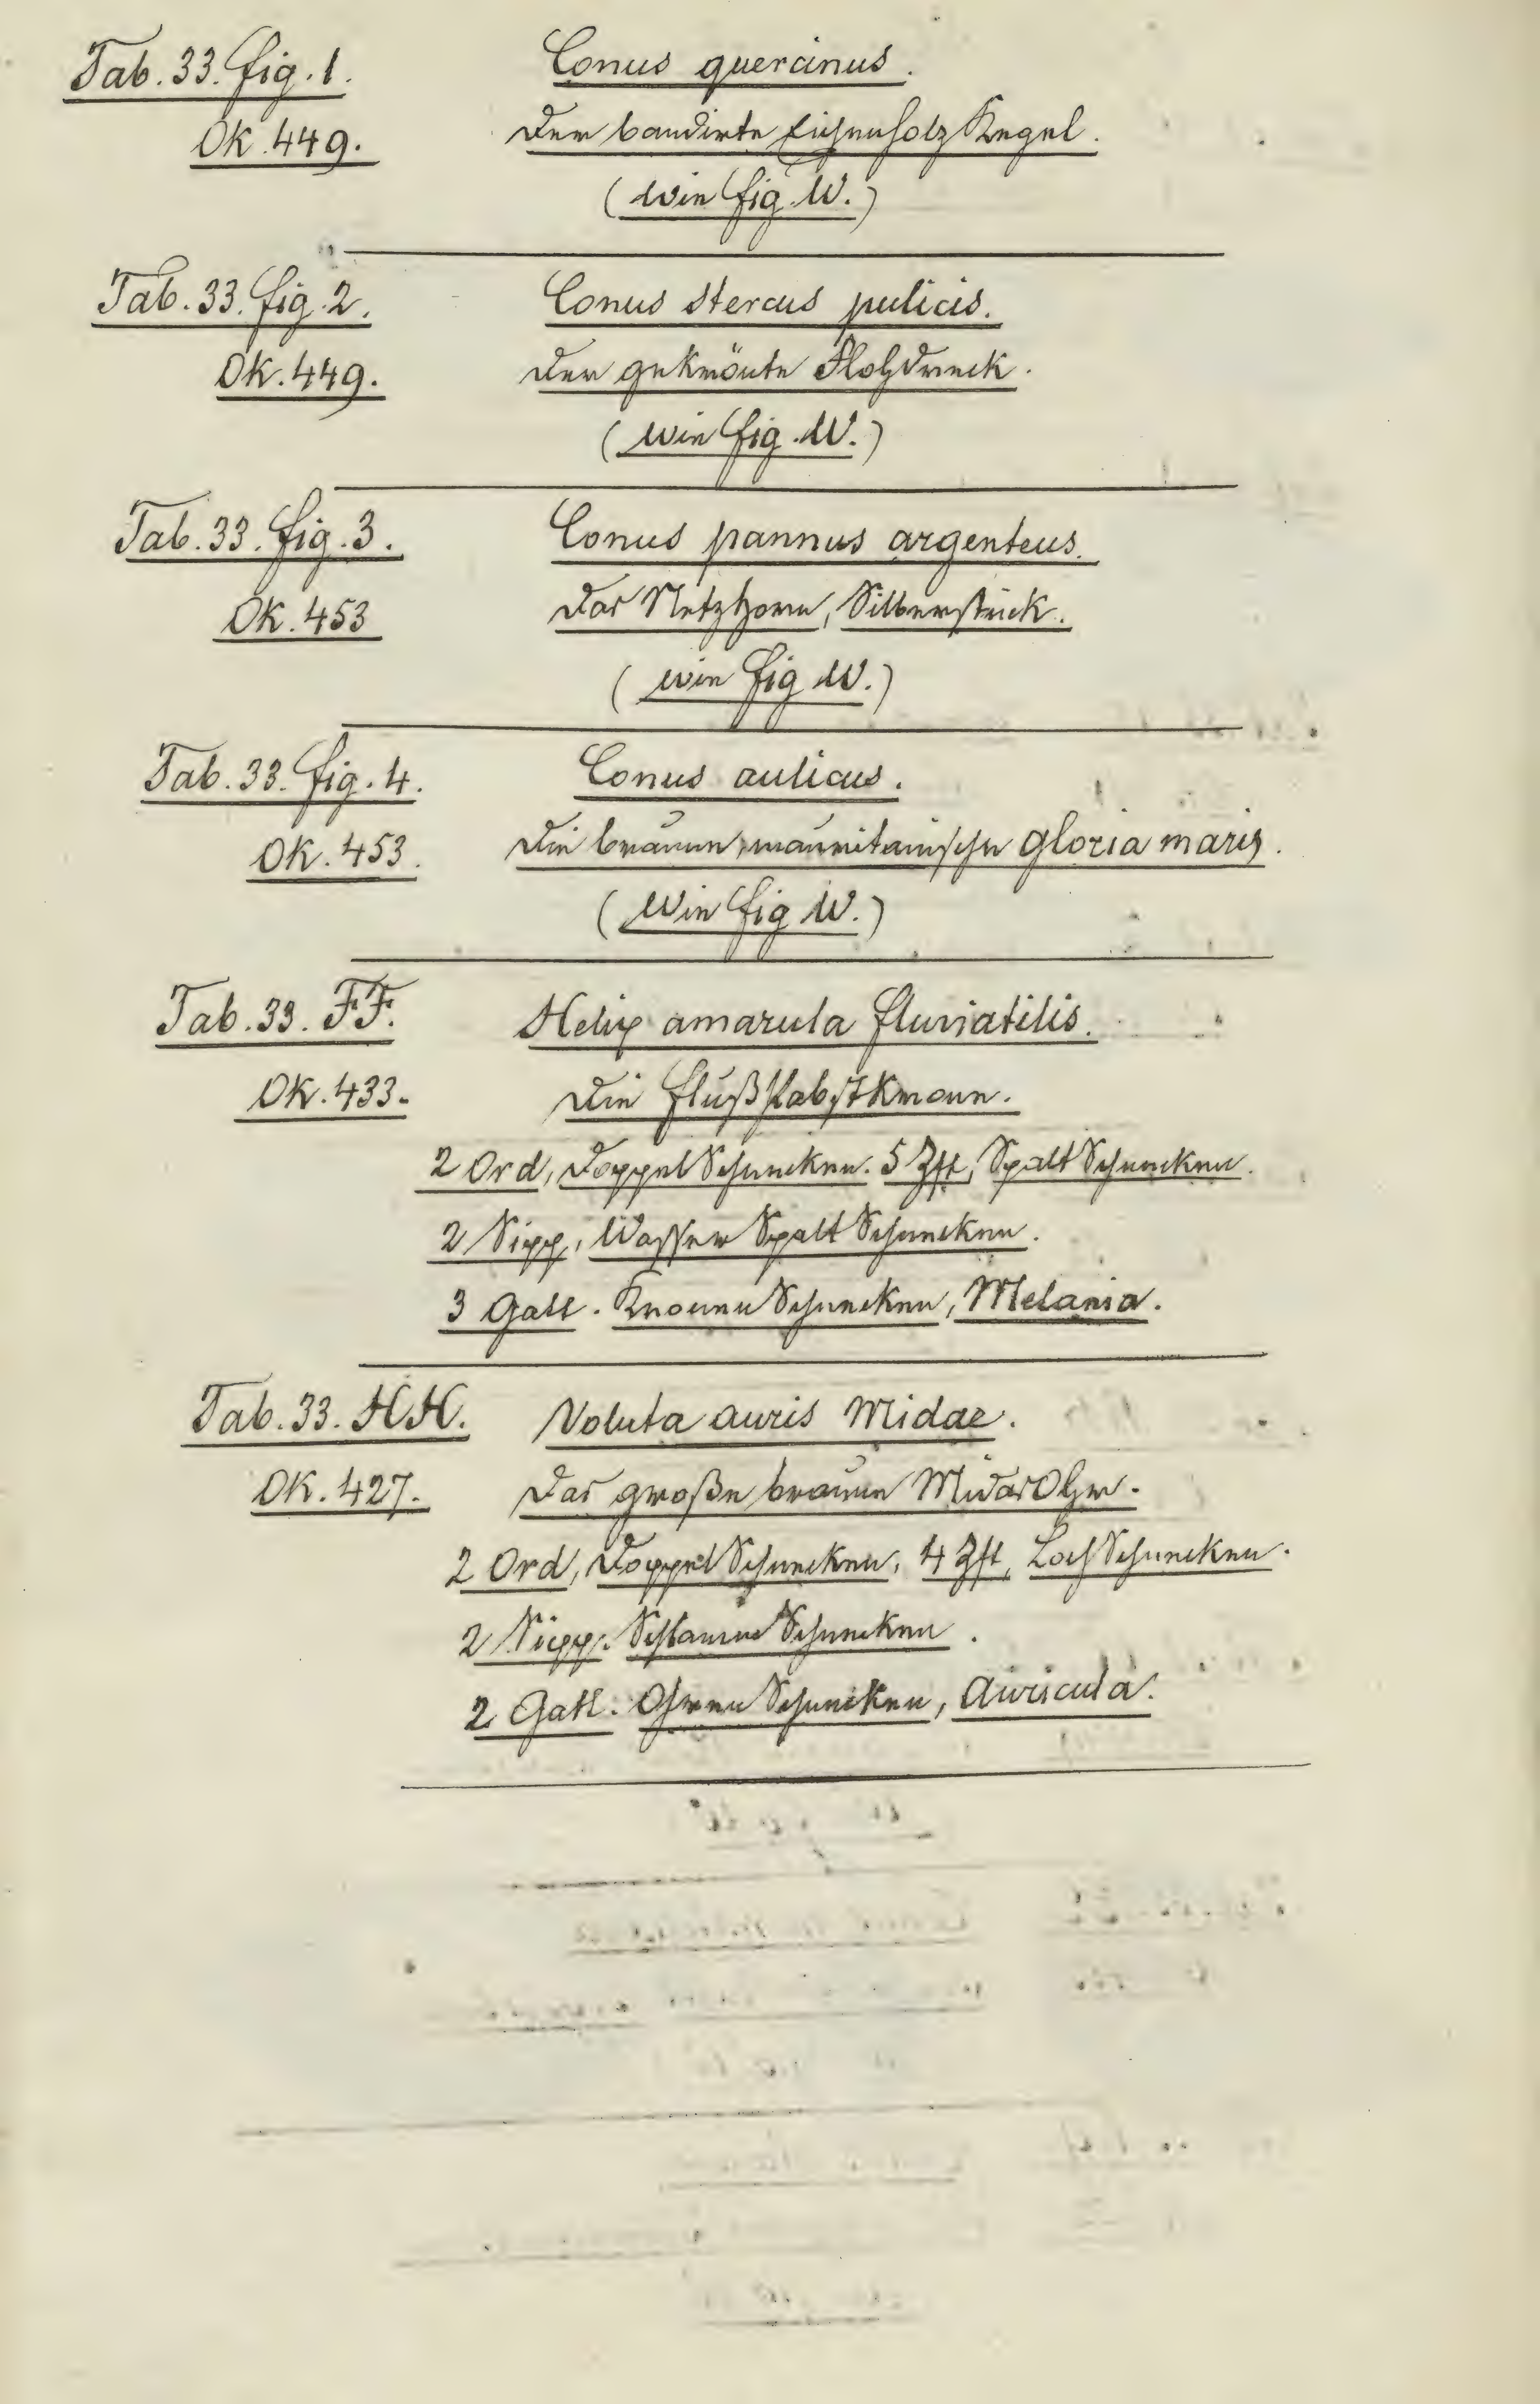 Tab. 33. fig. 1. Conus quercinus.
OK. 449. Der bandirte Eichenholz Kegel.
(Wie fig. W.)
Tab. 33. fig. 2. Conus stercus pulicis.
OK. 449. Der gekrönte Flohdreck.
(Wie fig. W.)
Tab. 33. fig. 3. Conus pannus argenteus.
OK. 453 Das Netzhorn, Silberstück.
(wie fig W.)
Tab. 33. fig. 4. Conus aulicus.
OK. 453. Die braune, mauritanische Gloria maris.
(Wie fig W.)
Tab. 33. FF. Helix amarula fluviatilis.
OK. 433. Die Flußpabstkrone.
2 Ord, Doppel Schnecken. 5 Zft, Spalt Schnecken.
2 Sipp, Wasser Spalt Schnecken.
3 Gatt. Kronen Schnecken, Melania.
Tab. 33. HH. Voluta auris Midae.
OK. 427. Das große braune Midas Ohr.
2 Ord, Doppel Schnecken, 4 Zft, Loch Schnecken.
2 Sipp. Schlamm Schnecken.
2 Gatt. Ohren Schnecken, Auricula.